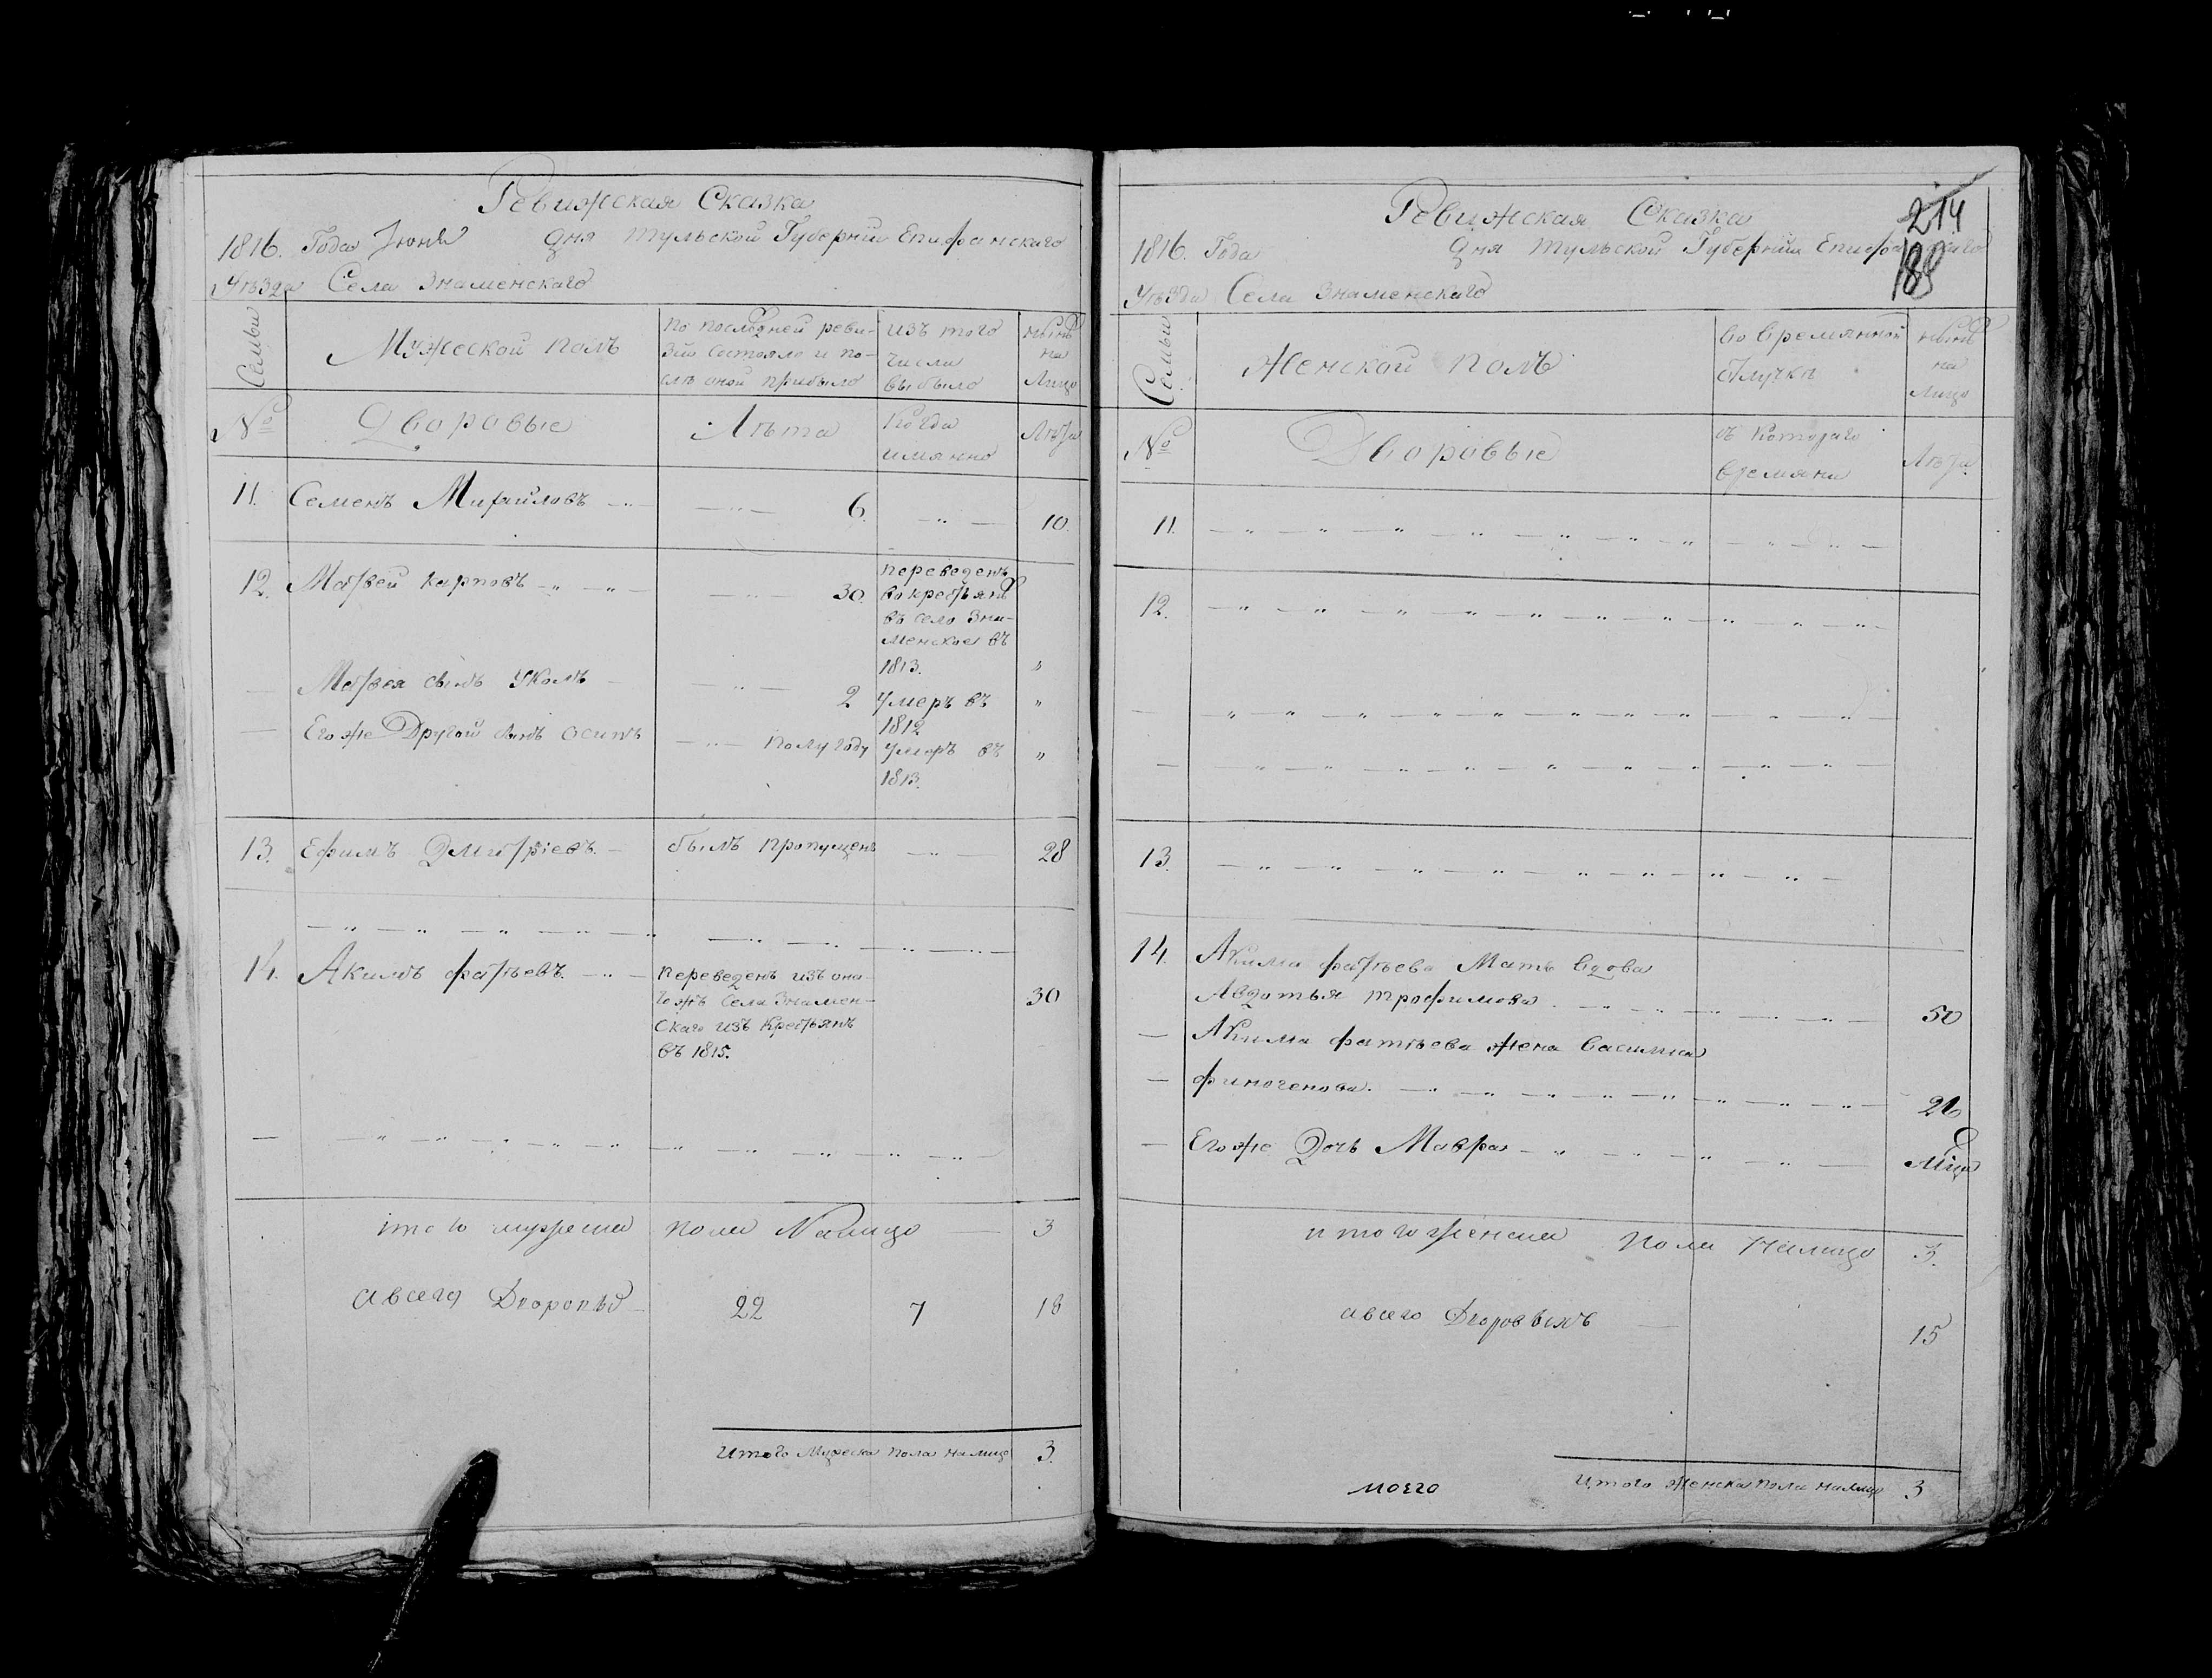 Ревижская Сказка
1816. Года Июня дня Тульской Губернии Епифанскаго
Уезда Села Знаменскаго
Семьи
Мужеской полъ
По последней реви-
зіи состояло и по-
сле оной прибыло
изъ того
числа
выбыло
ныне
на
лицо
№
Дворовые
Лета
Когда
имянно
Лета
11. Семенъ Михайловъ 6. 10.
12. Матвей Карповъ 30.
переведенъ
во крестьяне
въ село Зна-
менское въ
1813.
Матвея сынъ 2
умеръ въ
1812
Егоже Другой сынъ Осипъ полугоду
умеръ въ
1813.
13. Ефимъ Дмитріевъ. былъ пропущенъ 28
14. Акимъ Фатеевъ.
переведенъ изъ она-
гожъ села Знамен-
скаго изъ крестьянъ
въ 1815.
30
итого мужеска пола Налицо 3
а всего Дворовыхъ 22 7 18
Итого Мужеска пола налицо 3.
214
188
Ревижская Сказка
1816. Года дня Тульской Губернии Епифанскаго
Уезда Села Знаменскаго
Семьи
Женской полъ
Во временной
отлучке
ныне
на
лицо
№
Дворовые
съ котораго
времяни
Лета
11.
12.
13.
14. Акима Фатеева Мать вдова
Авдотья Трофимова. 50
Акима Фатеева жена Василиса
Финогенова. 26
Егоже Дочь Мавра
итого женска пола налицо 3.
а всего Дворовыхъ 15
Итого женска пола налицо 3
моего